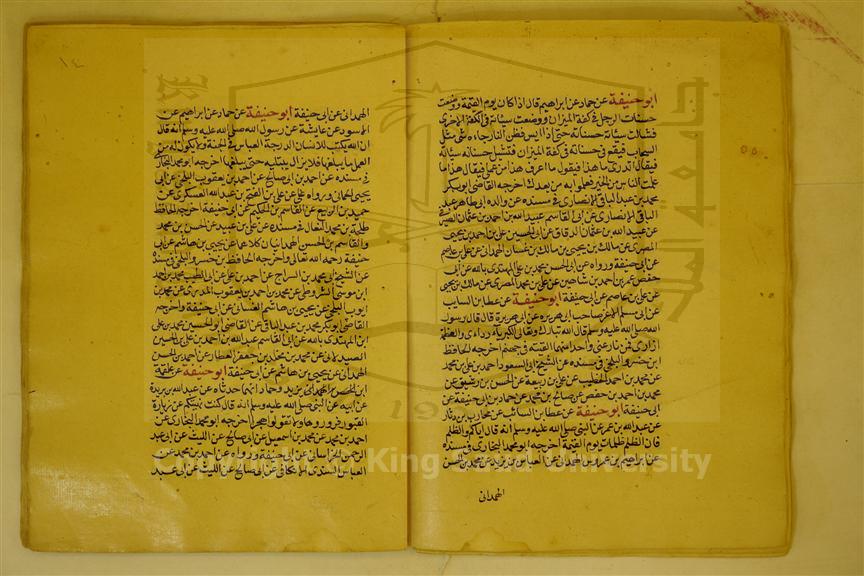 ابو حنيفة عن حماد عن ابراهيم قال اذا كان يوم القيمة ووضعت
حسنات الرجل في كفة الميزان ووضعت سيئاته في الكفة الاخرى
فشالت سيئاته حسناته حتى اذا ايس وظن النار جاءه شئ مثل
السحاب فيقع في حسناته في كفة الميزان فتشيل حسناته سيئاته
فيقال اتدري ما هذا فيقول ما اعرف هذا من عملي فيقال هذا ما
علمت الناس من الخير فعملوا به من بعدك اخرجه القاضي ابو بكر
محمد بن عبد الباقي الانصاري في مسنده عن والده ابي طاهر عبد
الباقي الانصاري عن ابي القاسم عبيد الله بن احمد بن عثمان الصيرفي
عن عبيد الله بن عثمان الدقاق عن ابي الحسين علي بن احمد بن يحيى
المصري عن مالك بن يحيى بن مالك بن غسان الهمداني عن علي بن عاصم
عن ابي حنيفة ورواه عن ابي الحسن محمد بن علي المهتدي بالله عن ابي
حفص عمر بن احمد بن شاهين عن علي بن محمد المصري عن مالك بن يحيى
عن علي بن عاصم عن ابي حنيفة ابو حنيفة عن عطا بن السايب
عن ابي مسلم الاغر صاحب ابي هريرة عن ابي هريرة قال قال رسول
الله صلى الله عليه وسلم قال الله تبارك وتعالى الكبرياء ردائي والعظمة
ازاري فمن نازعني واحدا منهما القيته في جهنم اخرجه الحافظ
ابن خسرو البلخي في مسنده عن الشيخ ابي السعود احمد بن علي
عن محمد بن احمد الخطيب عن علي بن ربيعة عن الحسن بن رشيق عن
محمد بن احمد بن حفص عن صالح بن محمد عن حماد بن ابي حنيفة عن
ابي حنيفة ابو حنيفة عن عطا بن السائب عن محارب بن دثار
عن عبد الله بن عمر عن النبي صلى الله عليه وسلم انه قال اياكم والظلم
فان الظلم ظلمات يوم القيمة اخرجه ابو محمد البخاري في مسنده
عن ابراهيم بن عمروس الهمداني عن العباس بن يزيد عن محمد بن الحسن
الهمداني
١٤
الهمداني عن ابي حنيفة ابو حنيفة عن حماد عن ابراهيم عن
الاسود عن عايشة عن رسول الله صلى الله عليه وسلم انه قال
ان الله يكتب للانسان الدرجة العليا في الجنة ولا يكون له من
العمل ما يبلغها فلا يزال يبتليه حتى يبلغها اخرجه ابو محمد البخاري
في مسنده عن احمد بن ابي صالح عن احمد بن يعقوب البلخي عن ابي
يحيى الحماني ورواه عن علي بن الفتح بن عبد الله العسكري عن
حميد بن الربيع عن القاسم بن الحكم عن ابي حنيفة اخرجه الحافظ
طلحة بن محمد في مسنده عن علي بن عبيد عن الحسن بن محمد
والقاسم بن الحسن الهمدانيان كلاهما عن يحيى بن هاشم عن ابي
حنيفة رحمه الله تعالى واخرجه الحافظ ابن خسرو البلخي في مسنده
عن الشيخ ابي محمد بن السراج عن احمد بن علي عن ابي الطيب محمد بن احمد
ابن موسى الشروطي عن محمد بن احمد بن يعقوب عن محمد
ايوب البلخي عن يحيى بن هاشم الغساني عن ابي حنيفة واخرجه
القاضي ابو بكر محمد بن عبد الباقي عن القاضي ابو الحسين محمد بن علي
ابن المهتدي بالله عن ابي القاسم عبد الله بن احمد بن علي بن الحسين
الصيدلاني عن محمد بن مخلد بن جعفر العطار عن احمد بن الحسن
الهمداني عن يحيى بن هاشم عن ابي حنيفة ابو حنيفة عن علقمة
ابن وحماد انهما حدثاه عن عبد الله بن بريدة
عن ابيه عن النبي صلى الله عليه وسلم انه قال كنت نهيتكم عن زيارة
القبور فزوروها ولا تقولوا هجرا اخرجه ابو محمد البخاري عن
احمد بن محمد بن احميل عن ابي صالح عن الليث عن ابي عبد
الرحمن الخراساني عن ابي حنيفة ورواه عن احمد بن محمد عن
العباس السندي عن ابي صالح عن الليث عن ابي عبد
Copyright © King Saud University
جامعة الملك
19